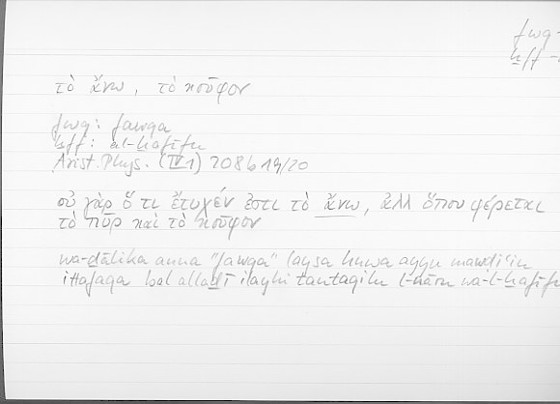 fwq-
ḫff -
τὸ ἄνω, τὸ κοῦφον
fwq: fawqa
ḫff: al-ḫafīfu
Arist. Phys. (IV 1) 208b 19/20
οὐ γὰρ ὅ τι ἔτυχέν ἐστι τὸ ἄνω, ἀλλ ὅπου φέρεται
τὸ πῦρ καὶ τὸ κοῦφον
wa-ḏālika anna "fawqa" laysa huwa ayyu mawḍiʿin
ittafaqa bal allaḏī ilayhi tantaqilu l-nāru wa-l-ḫafīfu